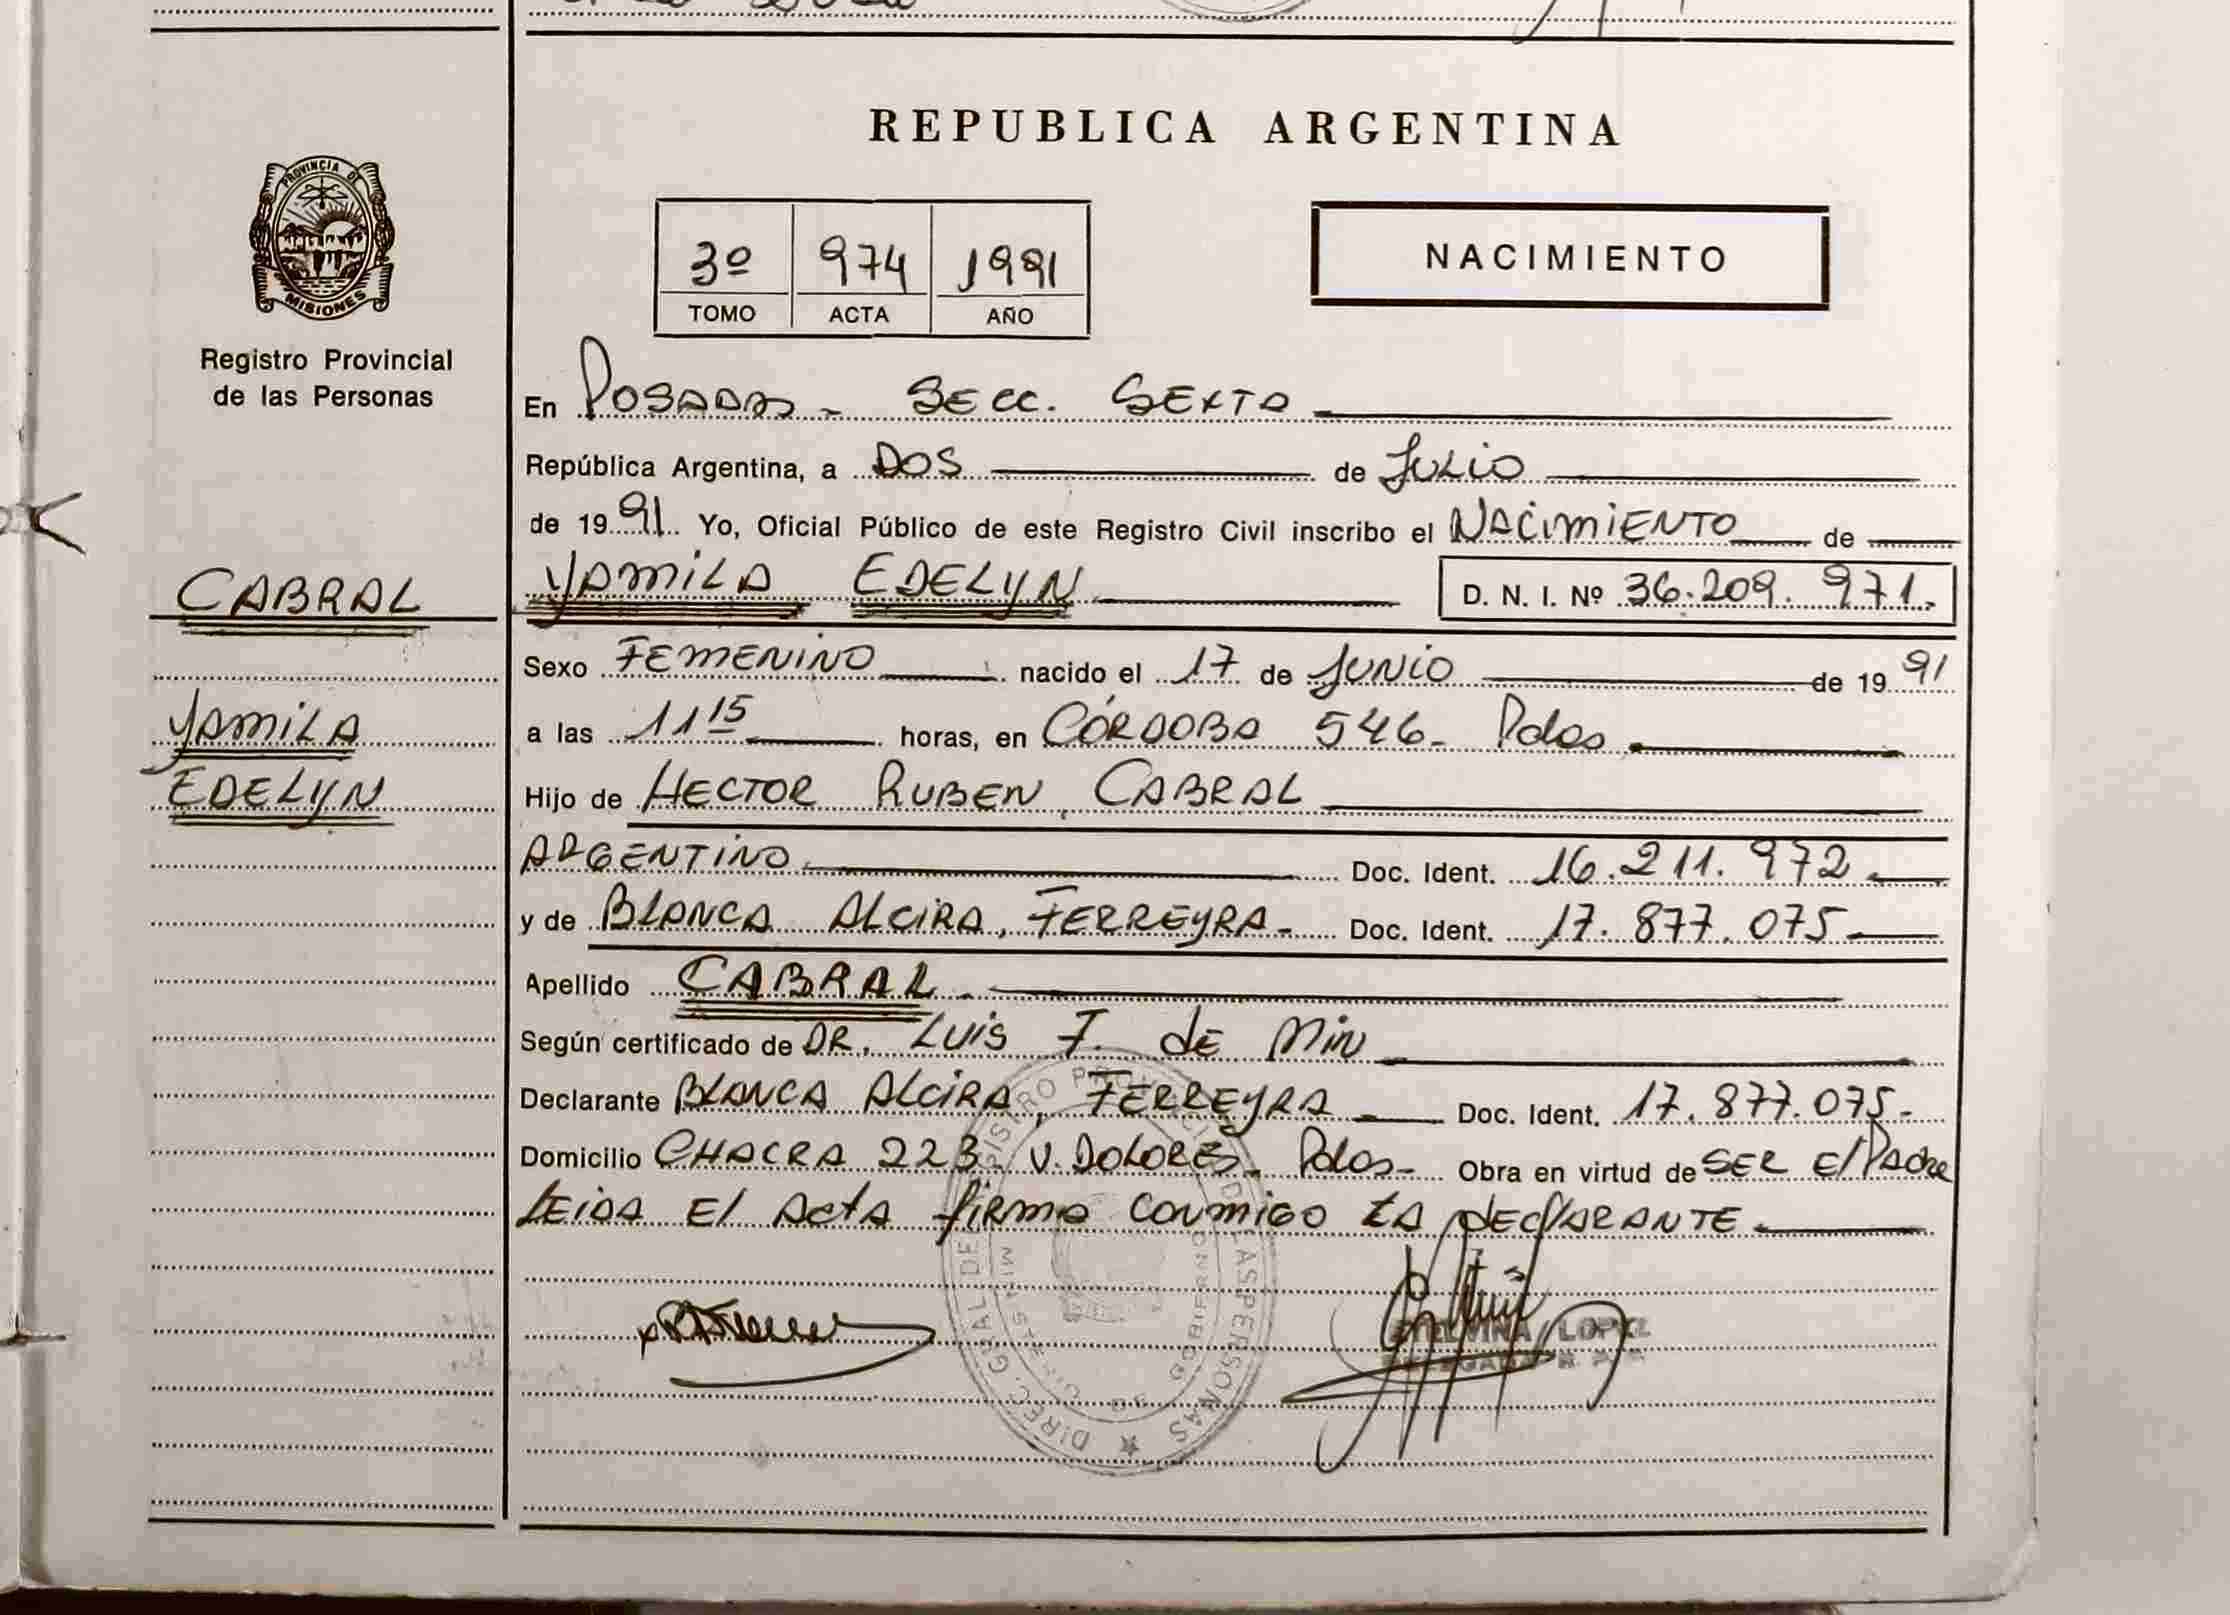 REPUBLICA ARGENTINA
PROVINCIA DE
MISIONES
Registro Provincial
de las Personas
3º 974 1991
TOMO ACTA AÑO
NACIMIENTO
En Posadas - Secc. Sexta
República Argentina, a Dos de Julio
de 1991 Yo, Oficial Público de este Registro Civil inscribo el Nacimiento de
CABRAL
Yamila Edelyn D. N. I. Nº 36.209.971.
Sexo Femenino nacido el 17 de Junio de 1991
Yamila
a las 11 15 horas, en Córdoba 546 - Pdas
Edelyn
Hijo de Hector Ruben Cabral
Argentino Doc. Ident. 16.211.972
y de Blanca Alcira, Ferreyra - Doc. Ident. 17.877.075
Apellido CABRAL
Según certificado de Dr. Luis F. de Min
Declarante Blanca Alcira, Ferreyra Doc. Ident. 17.877.075-
Domicilio Chacra 223 V. Dolores - Pdas - Obra en virtud de ser el Padre
Leida El Acta firma conmigo La declarante
DIREC. GRAL DEL REGISTRO PROVINCIAL DE LAS PERSONAS
LOPEZ
DELEGADA